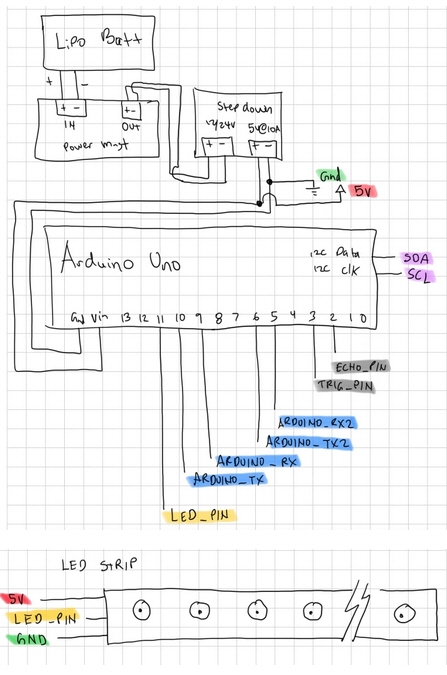 LiPo Batt
+ -
+ -
+-
IN
OUT
Power mngt
Step down
12/24V 5V@10A
+ -
+ -
Gnd
5V
Arduino Uno
I2C Data
I2C Clk
SDA
SCL
Gnd Vin 13 12 11 10 9 8 7 6 5 4 3 2 1 0
ECHO_PIN
TRIG_PIN
ARDUINO_RX2
ARDUINO_TX2
ARDUINO_RX
ARDUINO_TX
LED_PIN
LED STRIP
5V
LED_PIN
GND